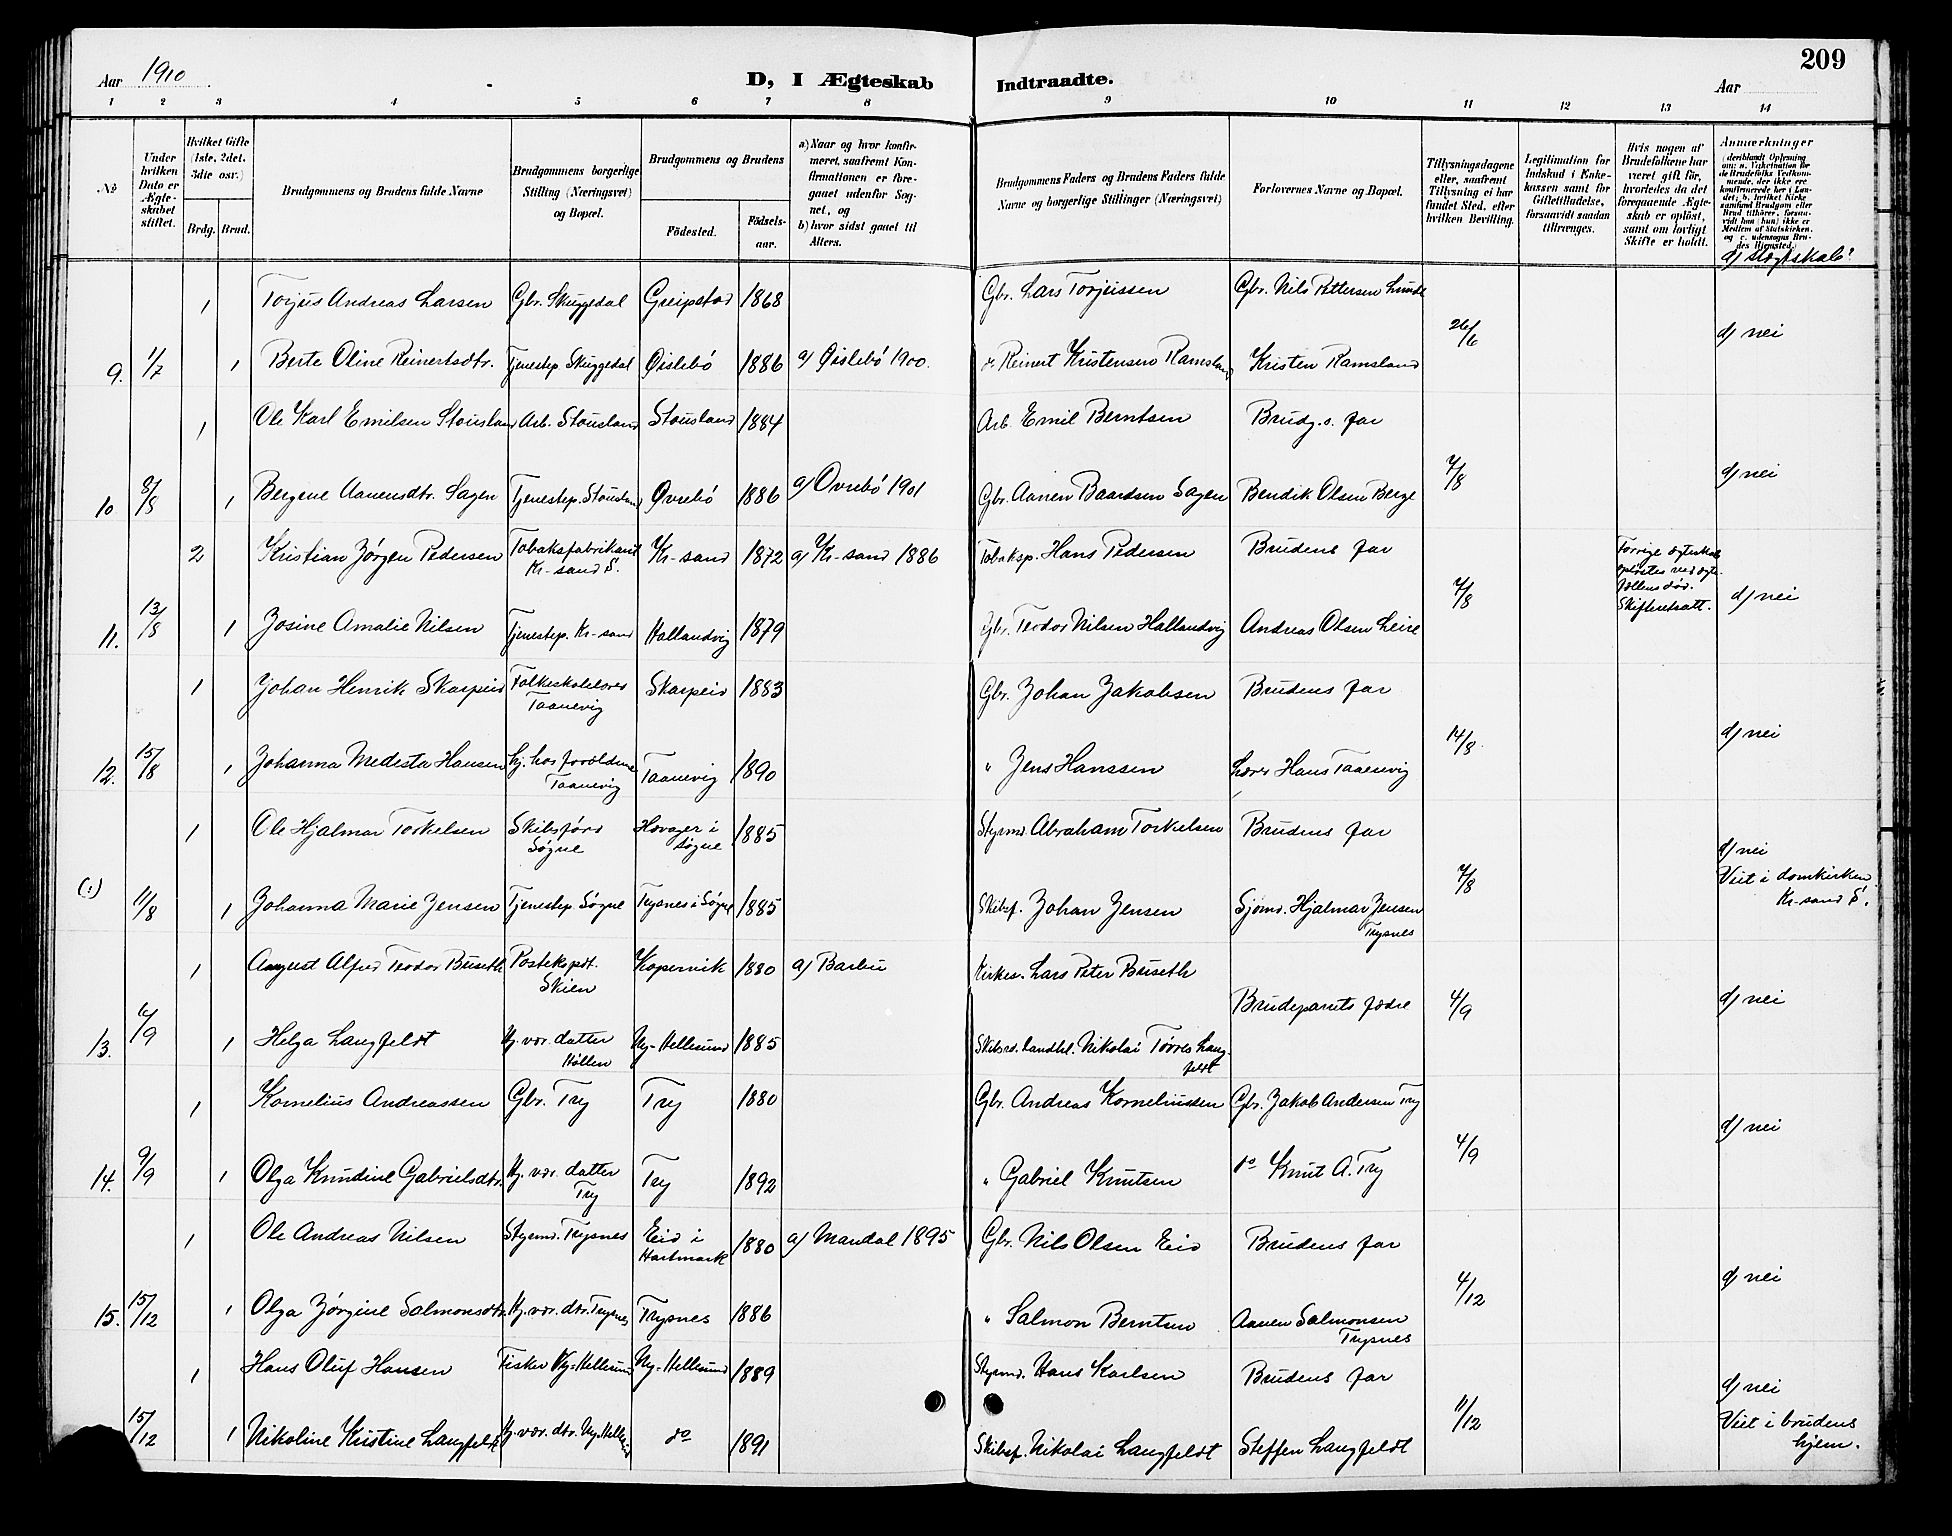 209
Aar 1910 D, I Ægteskab Indtraadte. Aar
1 2 3 4 5 6 7 8 9 10 11 12 13 14
№
Under hvilken Dato er Ægteskabet stiftet.
Hvilket Gifte (1ste, 2det, 3die osv.)
Brdg. Brud.
Brudgommens og Brudens fulde Navne
Brudgommens borgerlige Stilling (Næringsvei) og Bopæl.
Brudgommens og Brudens
Födested. Födsels-aar.
a) Naar og hvor konfirmeret, saafremt Konfirmationen er foregaaet udenfor Sognet, og
b) hvor sidst gaaet til Alters.
Brudgommens Faders og Brudens Faders fulde Navne og borgerlige Stillinger (Næringsvei)
Forlovernes Navne og Bopæl.
Tillysningsdagene eller, saafremt Tillysning ei har fundet Sted, efter hvilken Bevilling.
Legitimation for Indskud i Enkekassen samt for Giftetilladelse, forsaavidt saadan tiltrænges.
Hvis nogen af Brudefolkene har været gift för, hvorledes da det foregaaende Ægteskab er oplöst, samt om lovligt Skifte er holdt.
Anmærkninger
(deriblandt Oplysning om: a. Vakcination for de Brudefolks Vedkommende, der ikke ere konfirmerede her i Landet; b. hvilket Kirkesamfund Brudgom eller Brud tilhörer, forsaavidt han (hun) ikke er Medlem af Statskirken, og c. udensogns Brudes Hjemsted.)
d) slægtskab?
1 Torjus Andreas Larsen Gbr. Skuggedal Greipstad 1868 Gbr. Lars Torjeissen Gbr. Nils Pettersen Lunde
26/6 d) nei
9. 1/7 1 Berte Oline Reinertsdtr. Tjenestep. Skuggedal Øislebö 1886 a) Øislebö 1900. Reinert Kristensen Ramsland Kristen Ramsland
1 Ole Karl Emilsen Stousland Arb. Stousland Stousland 1884 Arb. Emil Berntsen Brudg.s. far
7/8 d) nei
10 8/8 1 Bergene Aanensdtr. Sagen Tjenestep. Stousland Øvrebö 1886 a) Øvrebö 1901 Gbr. Aanen Baardsen Sagen Bendik Olsen Berge
2 Kristian Jørgen Pedersen Tobaksfabrikant Kr-sand S. Kr-sand 1872 a) Kr-sand 1886 Tobaksp. Hans Pedersen Brudens far
7/8 Forrige ægteskab opløstes ved ægtefællens død. Skifteratt. d) nei
11. 13/8 1 Josine Amalie Nilsen Tjenestep. Kr-sand Hallandvig 1879 Gbr. Teodor Nilsen Hallandvig Andreas Olsen Leire
1 Johan Henrik Skarpeid Folkeskolelærer Taanevig Skarpeid 1883 Gbr. Johan Jakobsen Brudens far
14/8 d) nei
12. 15/8 1 Johanna Modesta Hansen hj. hos forældrene Taanevig Taanevig 1890 " Jens Hanssen Lærer Hans Taanevig
1 Ole Hjalmar Torkelsen Skibsfører Søgne Havager i Søgne 1885 Styrmd. Abraham Torkelsen Brudens far
7/8 d) nei Viet i domkirken Kr-sand S.
(:) 11/8 1 Johanna Marie Jensen Tjenestep Søgne Trysnes i Søgne 1885 Skibsf. Johan Jensen Sjømd. Hjalmar Jensen Trysnes
1 August Alfred Teodor Buseth Postekspdt. Skien Kopervik 1880 a) Barbu Kirkes. Lars Peter Buseth
Brudeparrets fædre 4/9 d) nei
13. 1 Helga Langfeldt Hj. vær. datter Höllen Ny-Hellesund 1885 Skibsrd. Landhl. Nikolai Tørres Langfeldt
1 Kornelius Andreassen Gbr. Try Try 1880 Gbr. Andreas Korneliussen Gbr. Jakob Andersen Try
4/9 d) nei
14. 9/9 1 Olga Knudine Gabrielsdtr. Hj. vær. datter Try Try 1892 " Gabriel Knutsen do Knut A. Try
1 Ole Andreas Nilsen Styrmd. Trysnes Eid i Hartmark 1880 a) Mandal 1895 Gbr. Nils Olsen Eid Brudens far
4/12 d) nei
15. 15/12 1 Olga Jørgine Salmonsdtr. Hj. vær. dtr. Trysnes Trysnes 1886 " Salmon Berntsen Aanen Salmonsen Trysnes
1 Hans Oluf Hansen Fisker Ny-Hellesund Ny-Hellesund 1889 Styrmd. Hans Karlsen Brudens far
11/12 d) nei Viet i brudens hjem.
15/12 1 Nikoline Kristine Langfeldt Hj. vær. dtr. Ny-Hellesund do 1891 Skibsf. Nikolai Langfeldt Steffen Langfeldt